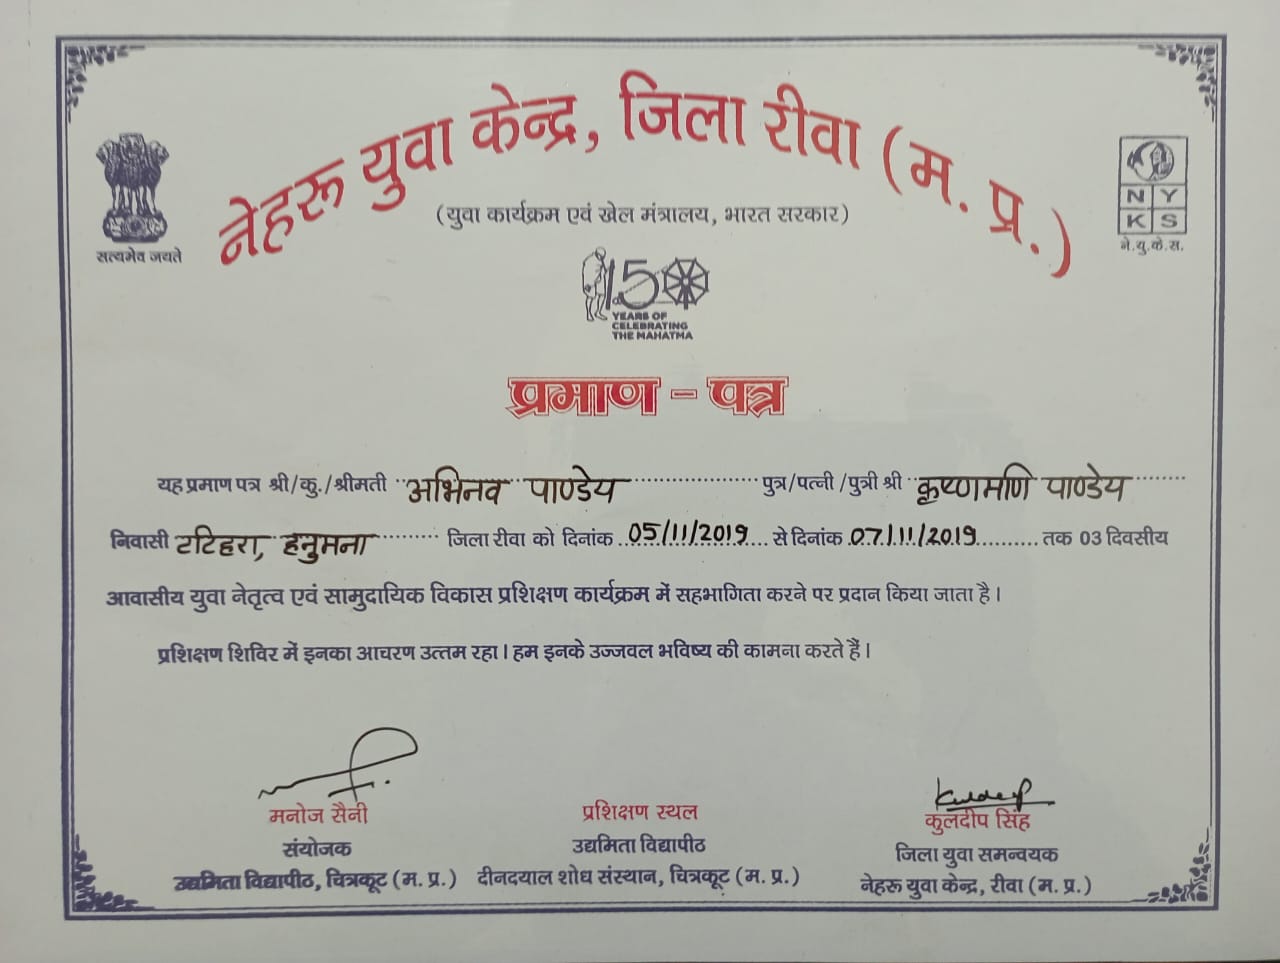 नेहरू युवा केन्द्र, जिला रीवा (म. प्र.)
सत्यमेव जयते
(युवा कार्यक्रम एवं खेल मंत्रालय, भारत सरकार)
N Y
K S
ने.यु.के.स.
150
YEARS OF
CELEBRATING
THE MAHATMA
प्रमाण - पत्र
यह प्रमाण पत्र श्री/कु./श्रीमती अभिनव पाण्डेय पुत्र/पत्नी/पुत्री श्री कृष्णमणि पाण्डेय
निवासी टटिहरा, हनुमना जिला रीवा को दिनांक 05/11/2019 से दिनांक 07/11/2019 तक 03 दिवसीय
आवासीय युवा नेतृत्व एवं सामुदायिक विकास प्रशिक्षण कार्यक्रम में सहभागिता करने पर प्रदान किया जाता है।
प्रशिक्षण शिविर में इनका आचरण उत्तम रहा। हम इनके उज्जवल भविष्य की कामना करते हैं।
मनोज सैनी
संयोजक
उद्यमिता विद्यापीठ, चित्रकूट (म. प्र.)
प्रशिक्षण स्थल
उद्यमिता विद्यापीठ
दीनदयाल शोध संस्थान, चित्रकूट (म. प्र.)
Kuldeep
कुलदीप सिंह
जिला युवा समन्वयक
नेहरू युवा केन्द्र, रीवा (म. प्र.)